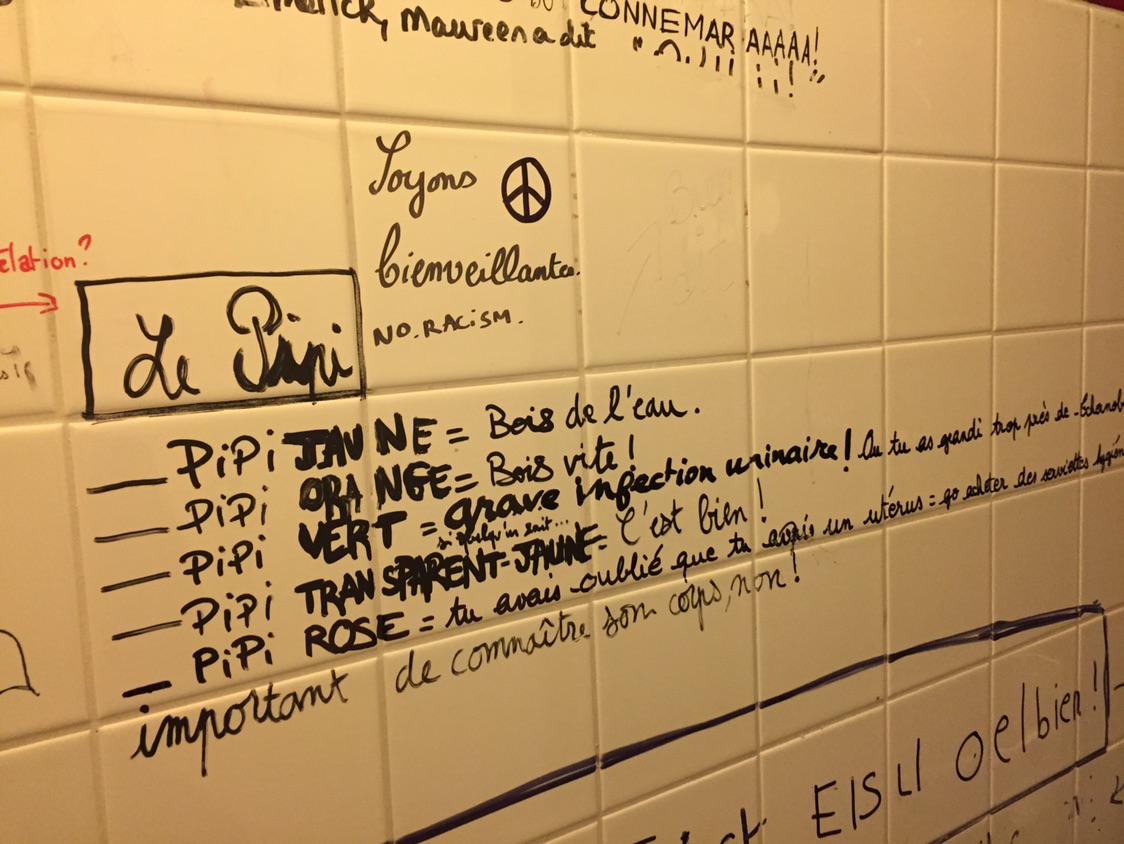 CONNEMARAAAAA!
Limerick, Maureen a dit
Soyons
bienveillantes.
NO.RACISM.
élation?
Le Pipi
PiPi JAUNE = Bois de l'eau.
PiPi ORANGE = Bois vite!
PiPi VERT = grave infection urinaire! Ou tu as grandi trop près de
si quelqu'un sait...
PiPi TRANSPARENT-JAUNE = C'est bien!
PiPi ROSE = tu avais oublié que tu avais un utérus = go acheter des serviettes
important de connaître son corps, non!